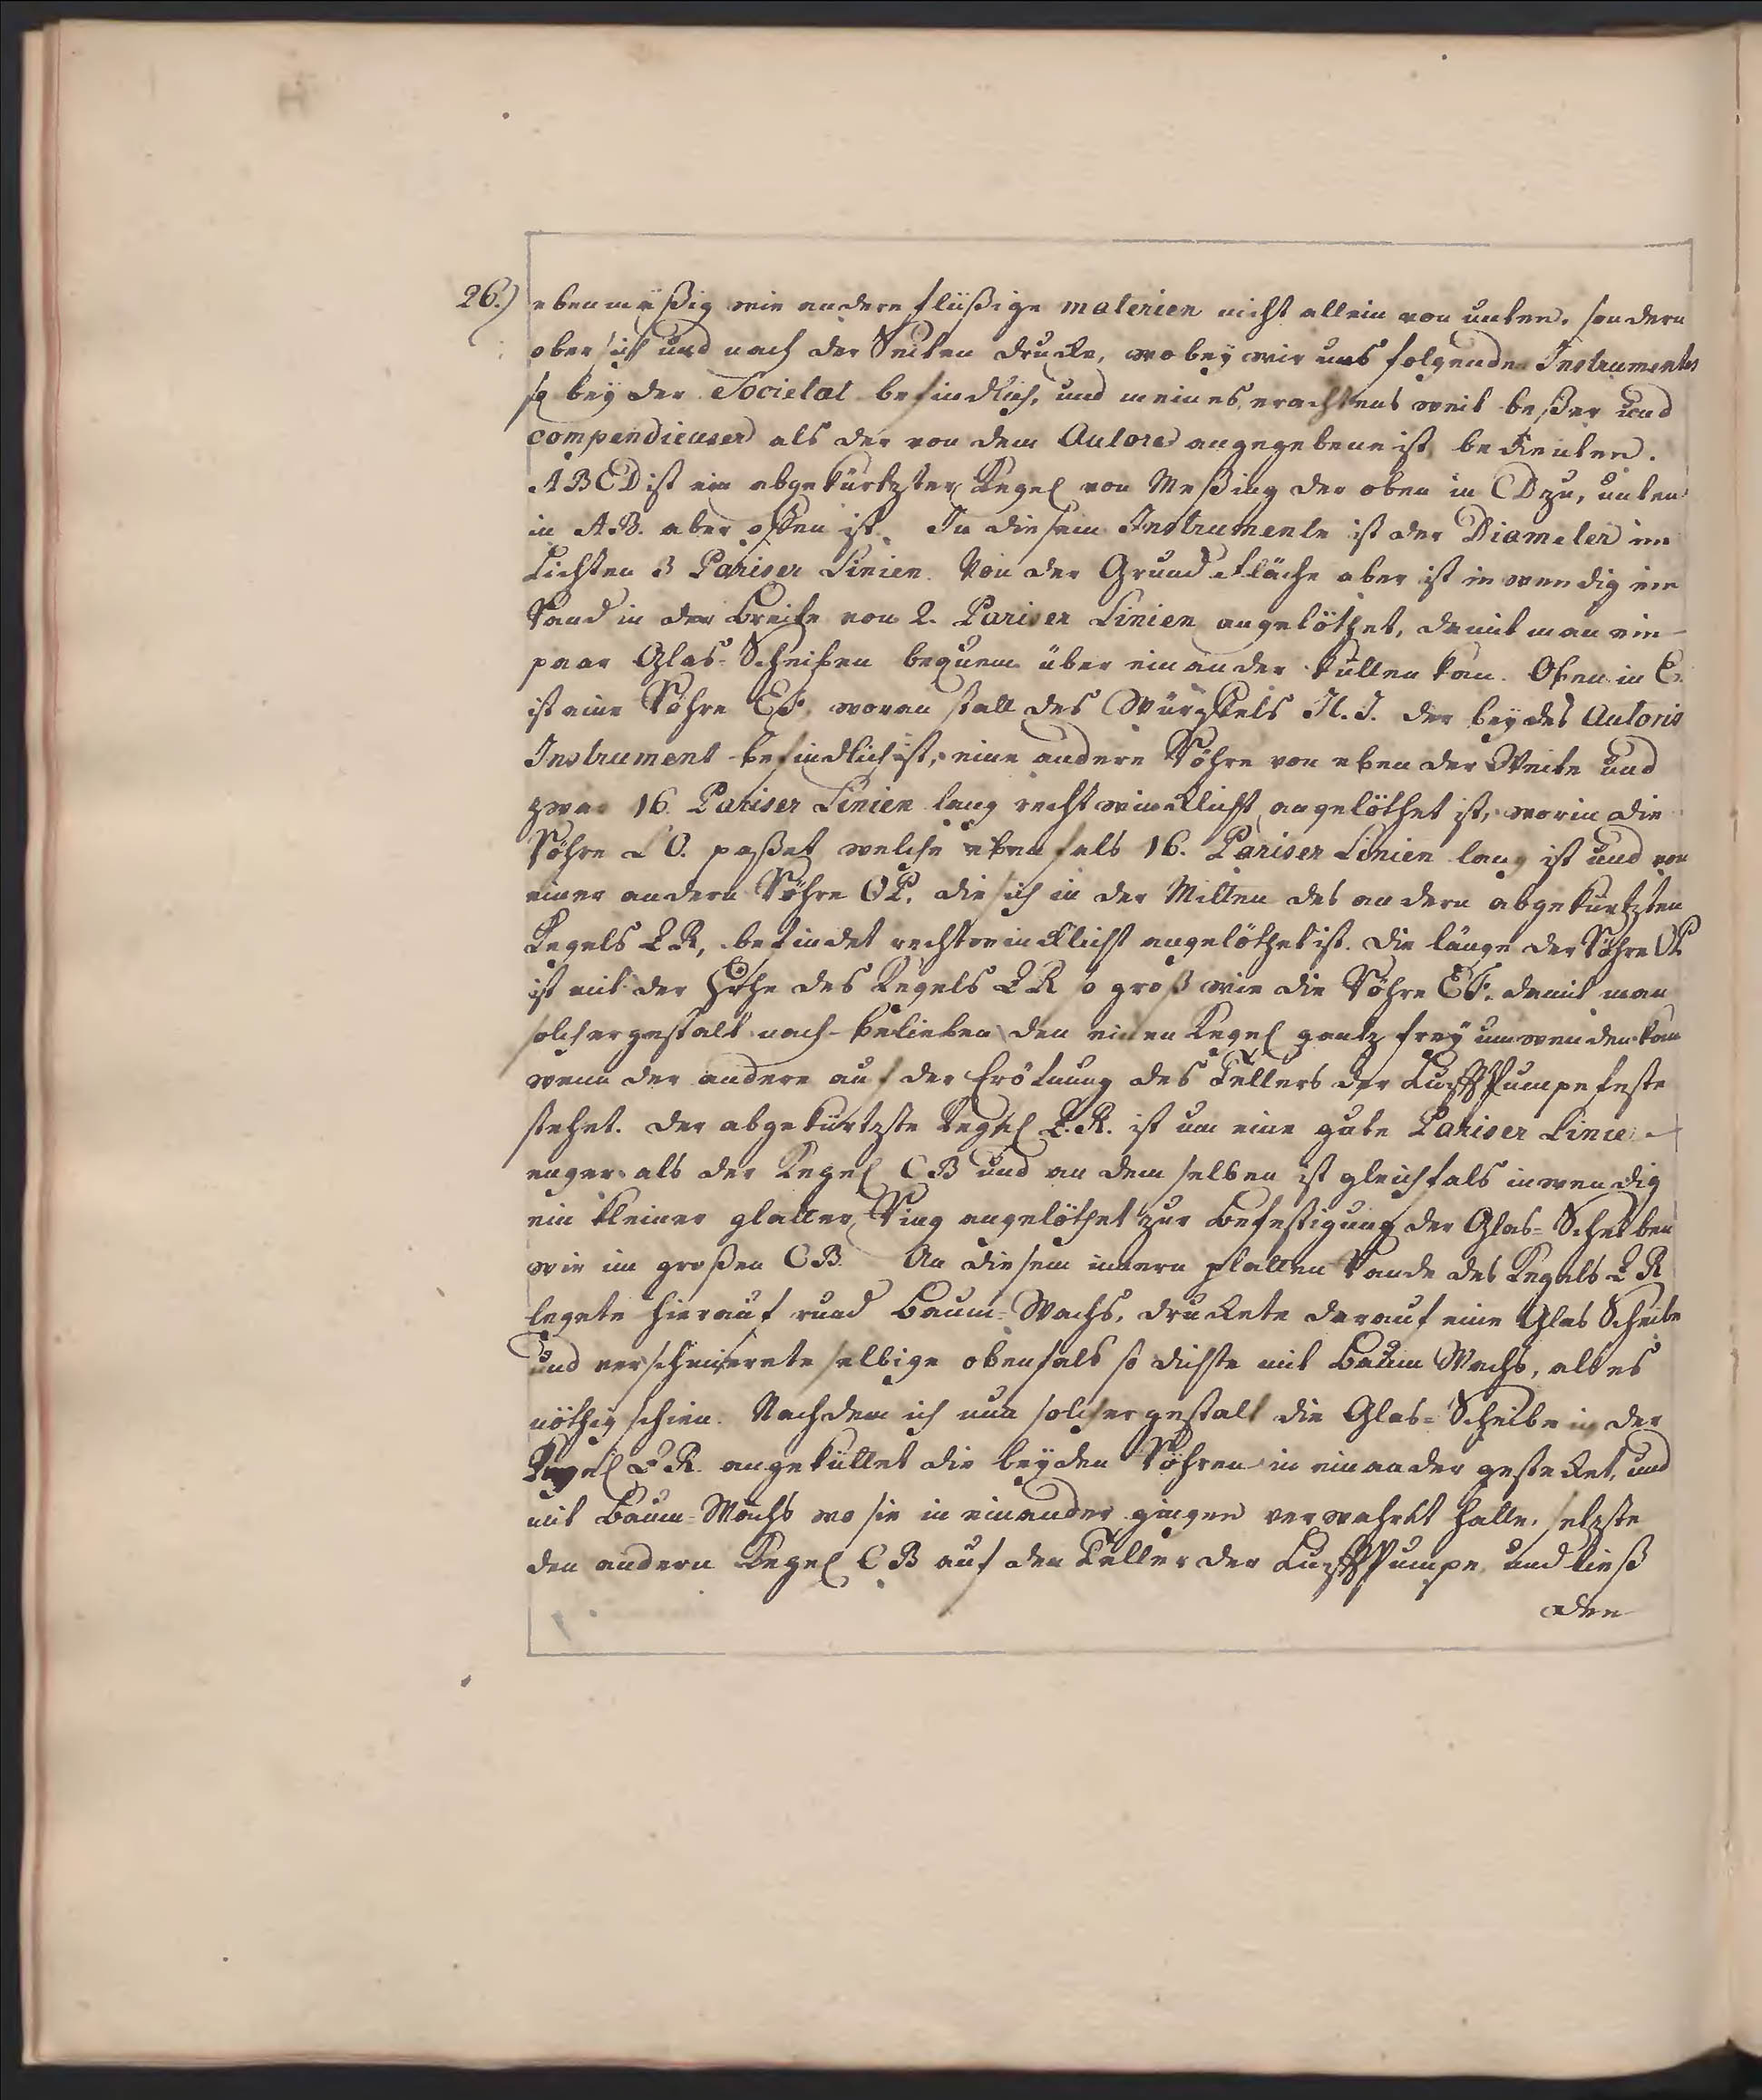 26.) ebenmäßig wie andere flüßige materien nicht allein von unten, sondern
ober sich und nach der Seiten drucke, wobey wir uns folgenden Instrumentes
so bey der Societat befindlich, und meines erachtens weit beßer und
compendieuser als der von dem Autore angegebene ist, bedienten.
ABCD ist ein abgekürtzter Kegel von Meßing der oben in CD zu, unten
in AB. aber offen ist. In diesem Instrumente ist der Diameter im
Lichten 3 Pariser Linien. Von der Grund Fläche aber ist inwendig ein
Rand in der Breite von 2. Pariser Linien angelöthet, damit man ein
paar Glas-Scheiben bequem über einander kütten kan. Oben in E.
ist eine Röhre EF. woran statt des Würffels H. I. der bey des Autoris
Instrument befindlich ist, eine andere Röhre von eben der Weite und
zwar 16. Pariser Linien lang rechtwincklicht angelöthet ist, worin die
Röhre LO. paßet welche eben fals 16. Pariser Linien lang ist und von
einer andern Röhre OP. die sich in der Mitten des andern abgekürtzten
Kegels QR, befindet rechtwincklicht angelöthet ist. Die länge der Röhre OP
ist mit der Höhe des Kegels QR so groß wie die Röhre EF. damit man
solchergestalt nach belieben den einen Kegel gantz frey umwenden kan
wenn der andere auf der Eröfnung des Tellers der Lufft Pumpe feste
stehet. Der abgekürtzte Kegel Q.R. ist um eine gute Pariser Linie
enger als der Kegel CB und an dem selben ist gleichfals inwendig
ein kleiner glatter Ring angelöthet zur Befestigung der Glas-Scheiben
wie im großen CB. An diesem innern platten Rande des Kegels QR
legete hierauf rund Baum-Wachs, druckete darauf eine Glas Scheibe
und verschmierete selbige obenfals so dichte mit Baum Wachs, als es
nöthig schien. Nachdem ich nun solchergestalt die Glas-Scheibe in der
Kegel QR. angeküttet die beyden Röhren in einander gestecket, und
mit Baum-Wachs wo sie in einander gingen verwahrt hatte, setzte
den andern Kegel CB auf den Teller der Lufft Pumpe und ließ
den